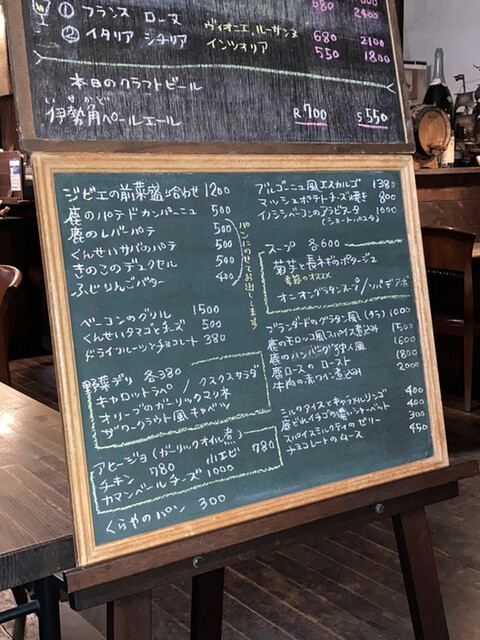 ① フランス ローヌ
ヴィオニエ、ルーサンヌ
680
2400
② イタリア シチリア
インツオリア
550
680
2100
1800
本日のクラフトビール
いせかど
伊勢角ペールエール
R 700
S 550
ジビエの前菜盛り合わせ 1200
鹿のパテドカンパーニュ 500
鹿のレバーパテ 500
くんせいサバのパテ 500
きのこのデュクセル 500
ふじりんごバター 400
パンにのせてお出しします
ベーコンのグリル 1500
くんせいタマゴとチーズ 500
ドライフルーツとチョコレート 380
野菜デリ 各380
キャロットラペ / クスクスサラダ
オリーブのガーリックマリネ
ザワークラウト風キャベツ
アヒージョ(ガーリックオイル煮)
チキン 780 小エビ 780
カマンベールチーズ 1000
くらやのパン 300
ブルゴーニュ風エスカルゴ 1380
マッシュポテトチーズ焼き 800
イノシシベーコンのアラビアータ 1000
(ショートパスタ)
スープ 各600
菊芋と長ネギのポタージュ
季節のオススメ
オニオングラタンスープ / ソパデアホ
ブランダードのグラタン風(タラ) 1000
鹿のモロッコ風スパイス煮込み 1500
鹿のハンバーグ狩人風 1600
鹿ロースのロースト 1800
牛肉の赤ワイン煮込み 2000
ミルクアイスとキャラメルリンゴ 400
庭どれイチゴの濃いシャーベット 400
スパイスミルクティのゼリー 300
チョコレートのムース 450